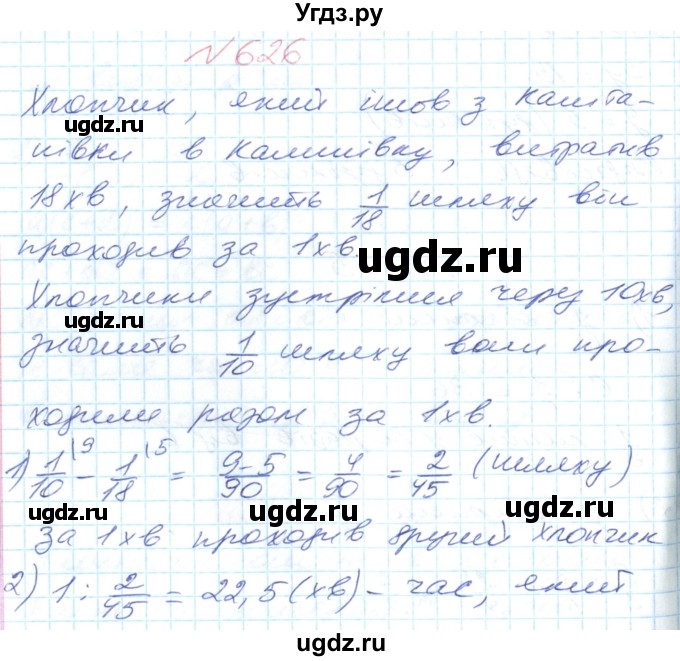 Угдз.ру
№ 626
Хлопчик, який ішов з Кашта-
нівки в Калинівку, витратив
18 хв, значить 1/18 шляху він
проходив за 1 хв.
Хлопчики зустрілися через 10 хв,
значить 1/10 шляху вони про-
ходили разом за 1 хв.
1) 1/10 |9 - 1/18 |5 = 9-5/90 = 4/90 = 2/45 (шляху)
за 1 хв проходив другий хлопчик
2) 1 : 2/45 = 22,5 (хв) - час, який
ugdz.ru
ugdz.ru
ugdz.ru
ugdz.ru
ugdz.ru
ugdz.ru
ugdz.ru
ugdz.ru
ugdz.ru
ugdz.ru